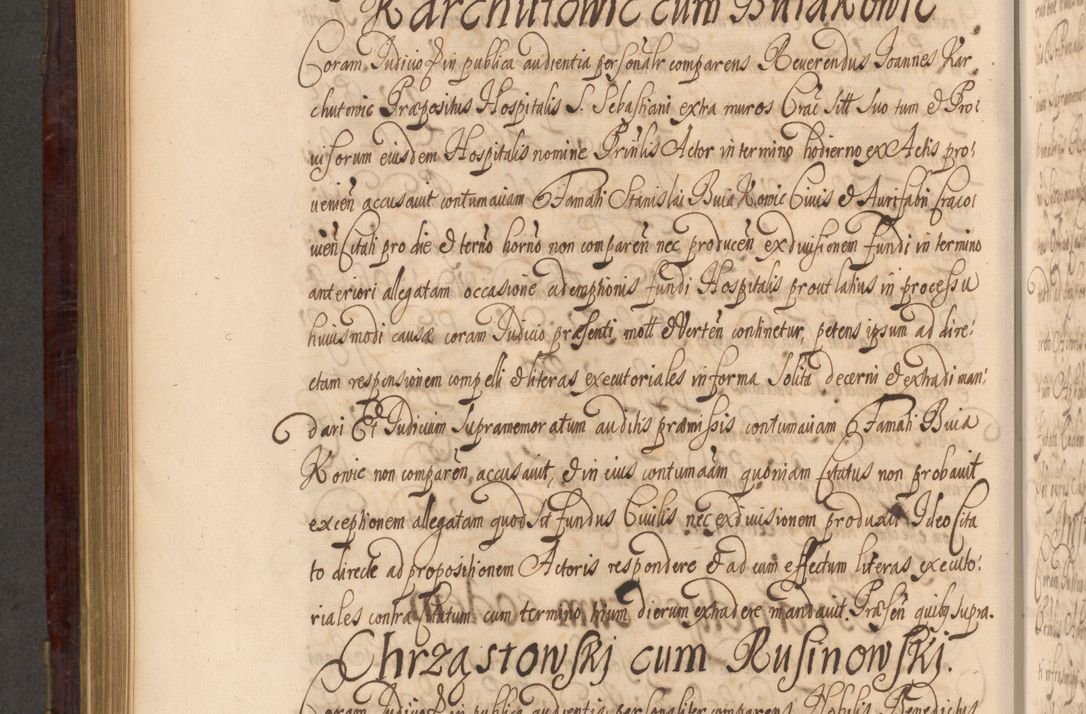 Karchutowic cum Buiakowic
Coram Judicio et in publica audientia personalr comparens Reverendus Joannes Kar
chutowic Præpositus Hospitalis S. Sebastiani extra muros Crac̃ sitt suo tum et Pro:
visorum eiusdem Hospitalis nomine Prin̄lis Actor in termino hodierno ex Actis pro:
venien̄ accusavit contumaciam Famati Stanislai Buiakowic Civis et Aurifabri Craco:
vien̄ Citati pro die et tern̄o horn̄o non comparen̄ nec producen̄ exdivisionem fundi in termino
anteriori allegatam occasione ademptionis fundi Hospitalis prout latius in processu
huiusmodi causæ coram Judicio præsenti mott et verten̄ continetur, petens ipsum ad dire:
ctam responsionem compelli et literas executoriales in forma solita decerni et extradi man:
dari Et Judicium supramemoratum auditis præmissis contumaciam Famati Buia
Kowic non comparen̄ accusavit, et in eius contumaciam quoniam Citatus non probavit
exceptionem allegatam quod sit fundus Civilis nec exdivisionem produxit Ideo Cita
to directe ad propositionem Actoris respondere et ad eum effectum literas executo:
riales contra Citatum cum termino trium dierum extradere mandavit. Præsen̄ quibq supra.
Chrząstowskj cum Rusinowskj.
Coram Judicio et in publica audientia personaliter comparens Nobilis Benedictus